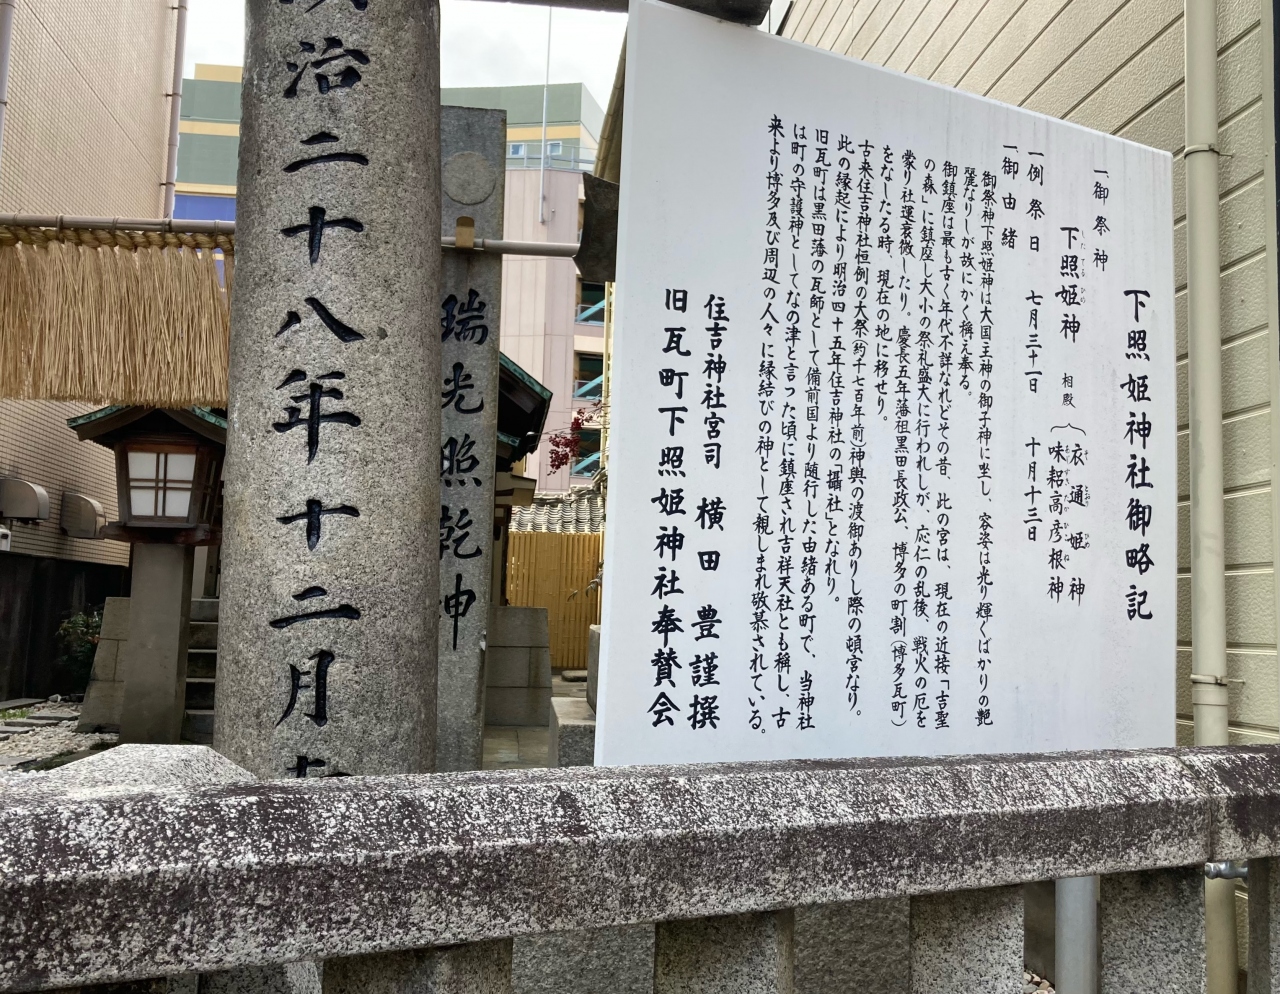 下照姫神社御略記
一御祭神
下照姫神 相殿
したてるひめ
衣通姫神
そとおりひめ
味耜高彦根神
あじすきたかひこね
一例祭日 七月三十一日 十月十三日
一御由緒
御祭神下照姫神は大国主神の御子神に坐し、容姿は光り輝くばかりの艶
麗なりしが故にかく稱え奉る。
御鎮座は最も古く年代不詳なれどその昔、此の宮は、現在の近接「吉聖
の森」に鎮座し大小の祭礼盛大に行われしが、応仁の乱後、戦火の厄を
蒙り社運衰微したり。慶長五年藩祖黒田長政公、博多の町割(博多瓦町)
をなしたる時、現在の地に移せり。
古来住吉神社恒例の大祭(約千七百年前)神輿の渡御ありし際の頓宮なり。
此の縁起により明治四十五年住吉神社の「攝社」となれり。
旧瓦町は黒田藩の瓦師として備前国より随行した由緒ある町で、当神社
は町の守護神としてなの津と言った頃に鎮座され吉祥天社とも稱し、古
来より博多及び周辺の人々に縁結びの神として親しまれ敬慕されている。
住吉神社宮司 横田 豊謹撰
旧瓦町下照姫神社奉賛会
瑞光照乾神
治二十八年十二月